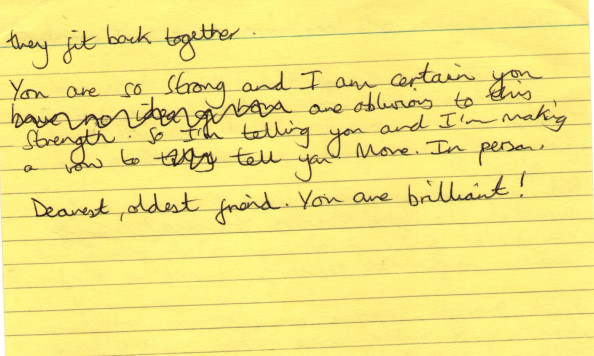 they fit back together.
You are so strong and I am certain you
have no idea are oblivious to this
strength. So I'm telling you and I'm making
a vow to tell you More. In person.
Dearest, oldest friend. You are brilliant!